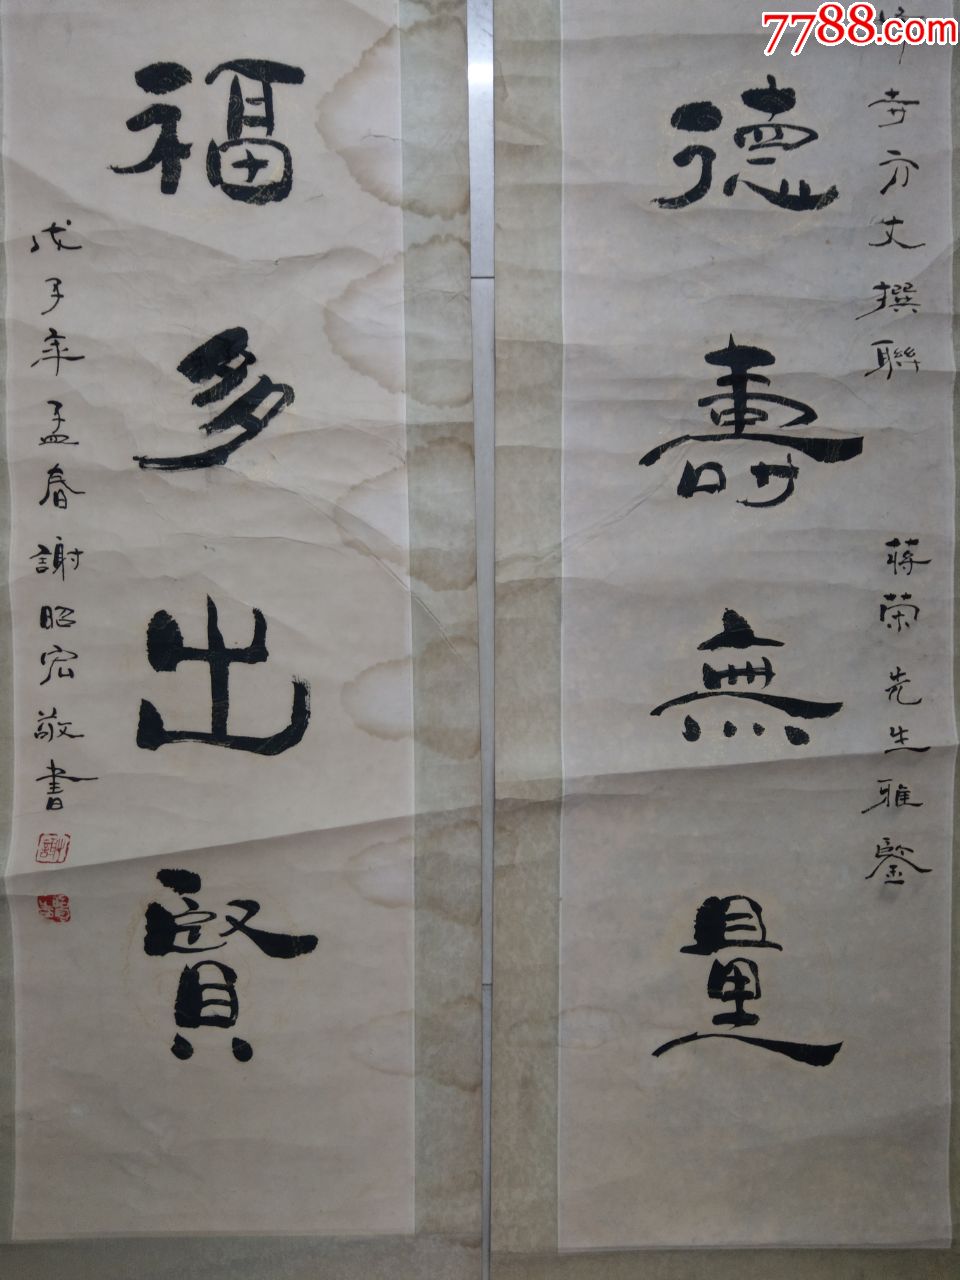 7788.com
寺方丈撰聯
蔣荣先生雅鑒
德壽無量
福多出賢
戊子年孟春謝昭宏敬書